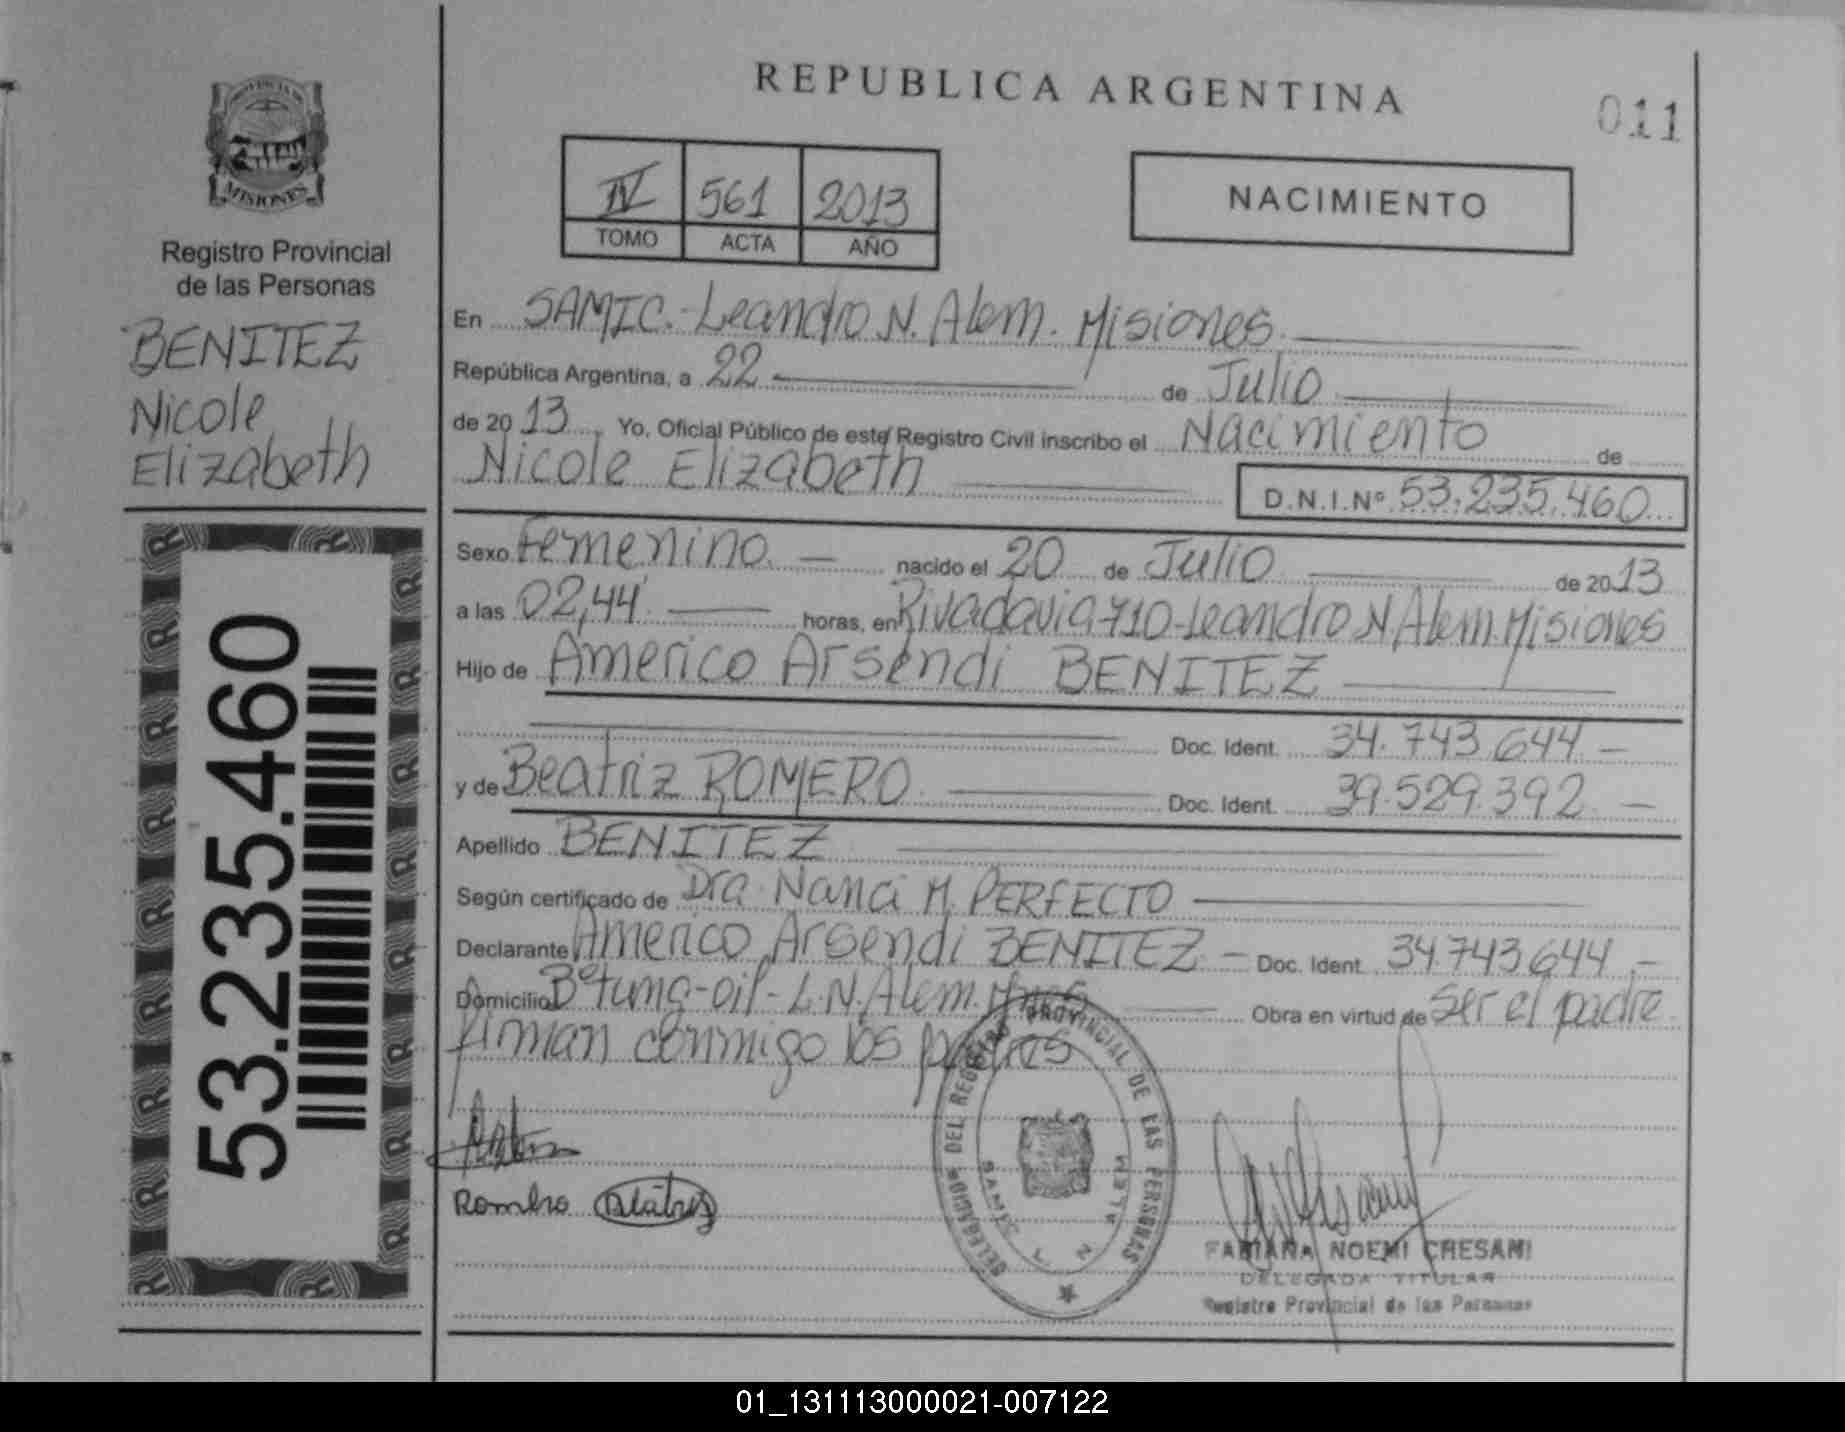 REPUBLICA ARGENTINA
011
PROVINCIA DE
MISIONES
Registro Provincial
de las Personas
BENITEZ
Nicole
Elizabeth
53.235.460
IV 561 2013
TOMO ACTA AÑO
NACIMIENTO
En SAMIC.-Leandro N. Alem. Misiones.
República Argentina, a 22 de Julio
de 2013 Yo, Oficial Público de este Registro Civil inscribo el Nacimiento de
Nicole Elizabeth D.N.I.Nº 53.235.460
Sexo Femenino nacido el 20 de Julio de 2013
a las 02,44 horas, en Rivadavia 710-Leandro N. Alem. Misiones
Hijo de Americo Arsendi BENITEZ
Doc. Ident. 34.743.644
y de Beatriz ROMERO Doc. Ident. 39.529.392
Apellido BENITEZ
Según certificado de Dra. Nanci M. PERFECTO
Declarante Americo Arsendi BENITEZ Doc. Ident. 34743644
Domicilio Bº tung-oil-L.N. Alem. Mnes Obra en virtud de ser el padre
firman conmigo los padres
DELEGACION DEL REGISTRO PROVINCIAL DE LAS PERSONAS
SAMIC L. N. ALEM
Romero Beatriz
FABIANA NOEMI CRESANI
DELEGADA TITULAR
Registro Provincial de las Personas
01_131113000021-007122